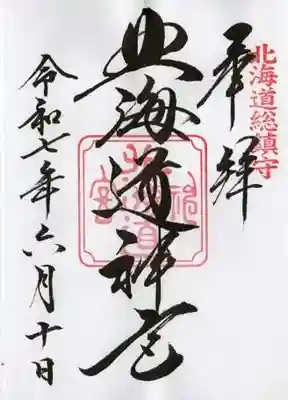 北海道総鎮守
奉拝
北海道神宮
北海道神宮
令和七年六月十日